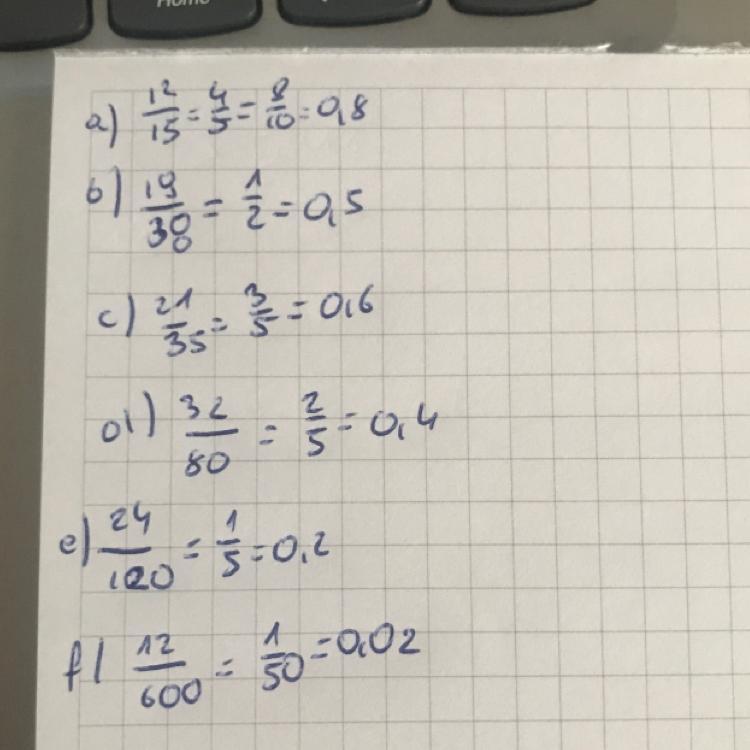 Home
a) 12/15 = 4/5 = 8/10 = 0,8
b) 19/38 = 1/2 = 0,5
c) 21/35 = 3/5 = 0,6
d) 32/80 = 2/5 = 0,4
e) 24/120 = 1/5 = 0,2
f) 12/600 = 1/50 = 0,02